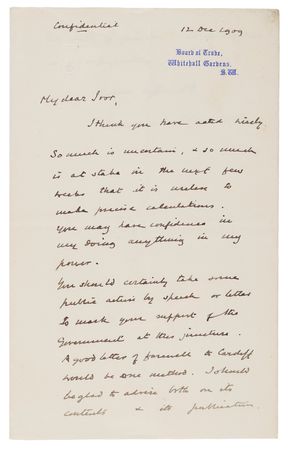 Confidential
12 Dec 1909
Board of Trade,
Whitehall Gardens,
S.W.
My dear Ivor,
I think you have acted wisely
So much is uncertain, & so much
is at stake in the next few
weeks that it is useless to
make precise calculations.
You may have confidence in
my doing anything in my
power.
You should certainly take some
public action by speech or letter
to mark your support of the
Government at this juncture.
A good letter of farewell to Cardiff
would be one method. I should
be glad to advise both on its
contents & its publication.